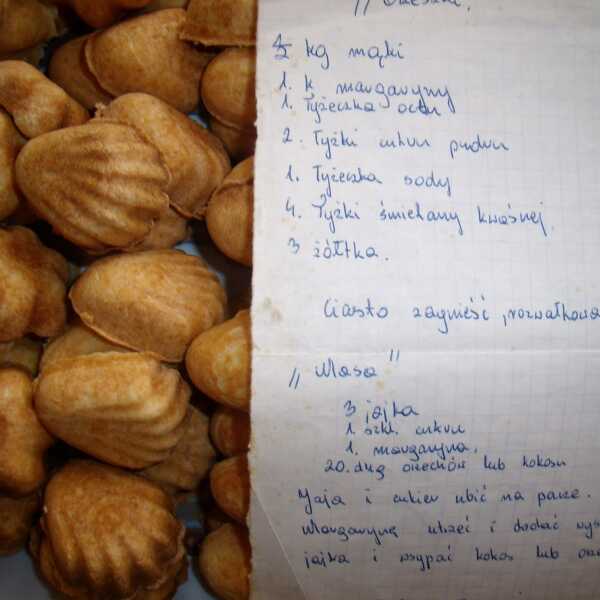 1/2 kg mąki
1. k margaryny
1. łyżeczka octu
2. łyżki cukru pudru
1. łyżeczka sody
4. łyżki śmietany kwaśnej.
3 żółtka.
Ciasto zagnieść, rozwałkowa
„Masa"
3 jajka
1 szkl. cukru
1. margaryna.
20. dkg orzechów lub kokosu
Jaja i cukier ubić na parze.
Margarynę utrzeć i dodać
jajka i wsypać kokos lub